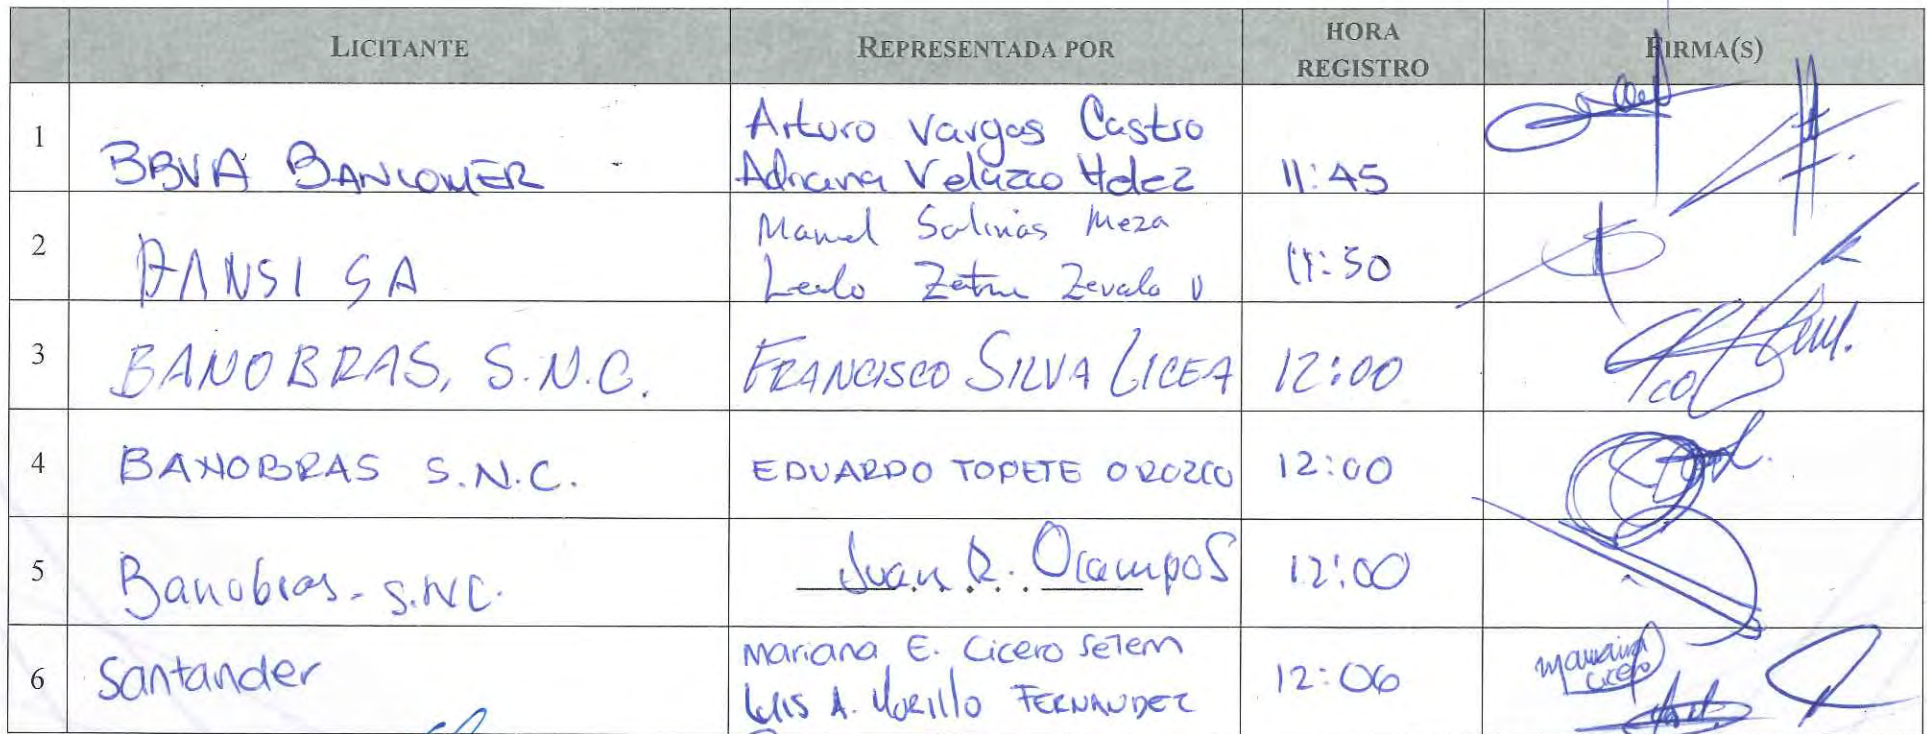 LICITANTE REPRESENTADA POR HORA REGISTRO FIRMA(S)
1 BBVA BANCOMER Arturo Vargas Castro
Adriana Velazco Hdez 11:45
2 BANSI SA Manuel Salinas Meza
Zevala 11:50
3 BANOBRAS, S.N.C. FRANCISCO SILVA LICEA 12:00
4 BANOBRAS S.N.C. EDUARDO TOPETE OROZCO 12:00
5 Banobras. S.N.C. Juan R. Ocampo S 12:00
6 Santander Mariana E. Cicero Selem
LUIS A. MURILLO FERNANDEZ 12:06
mariana cicero